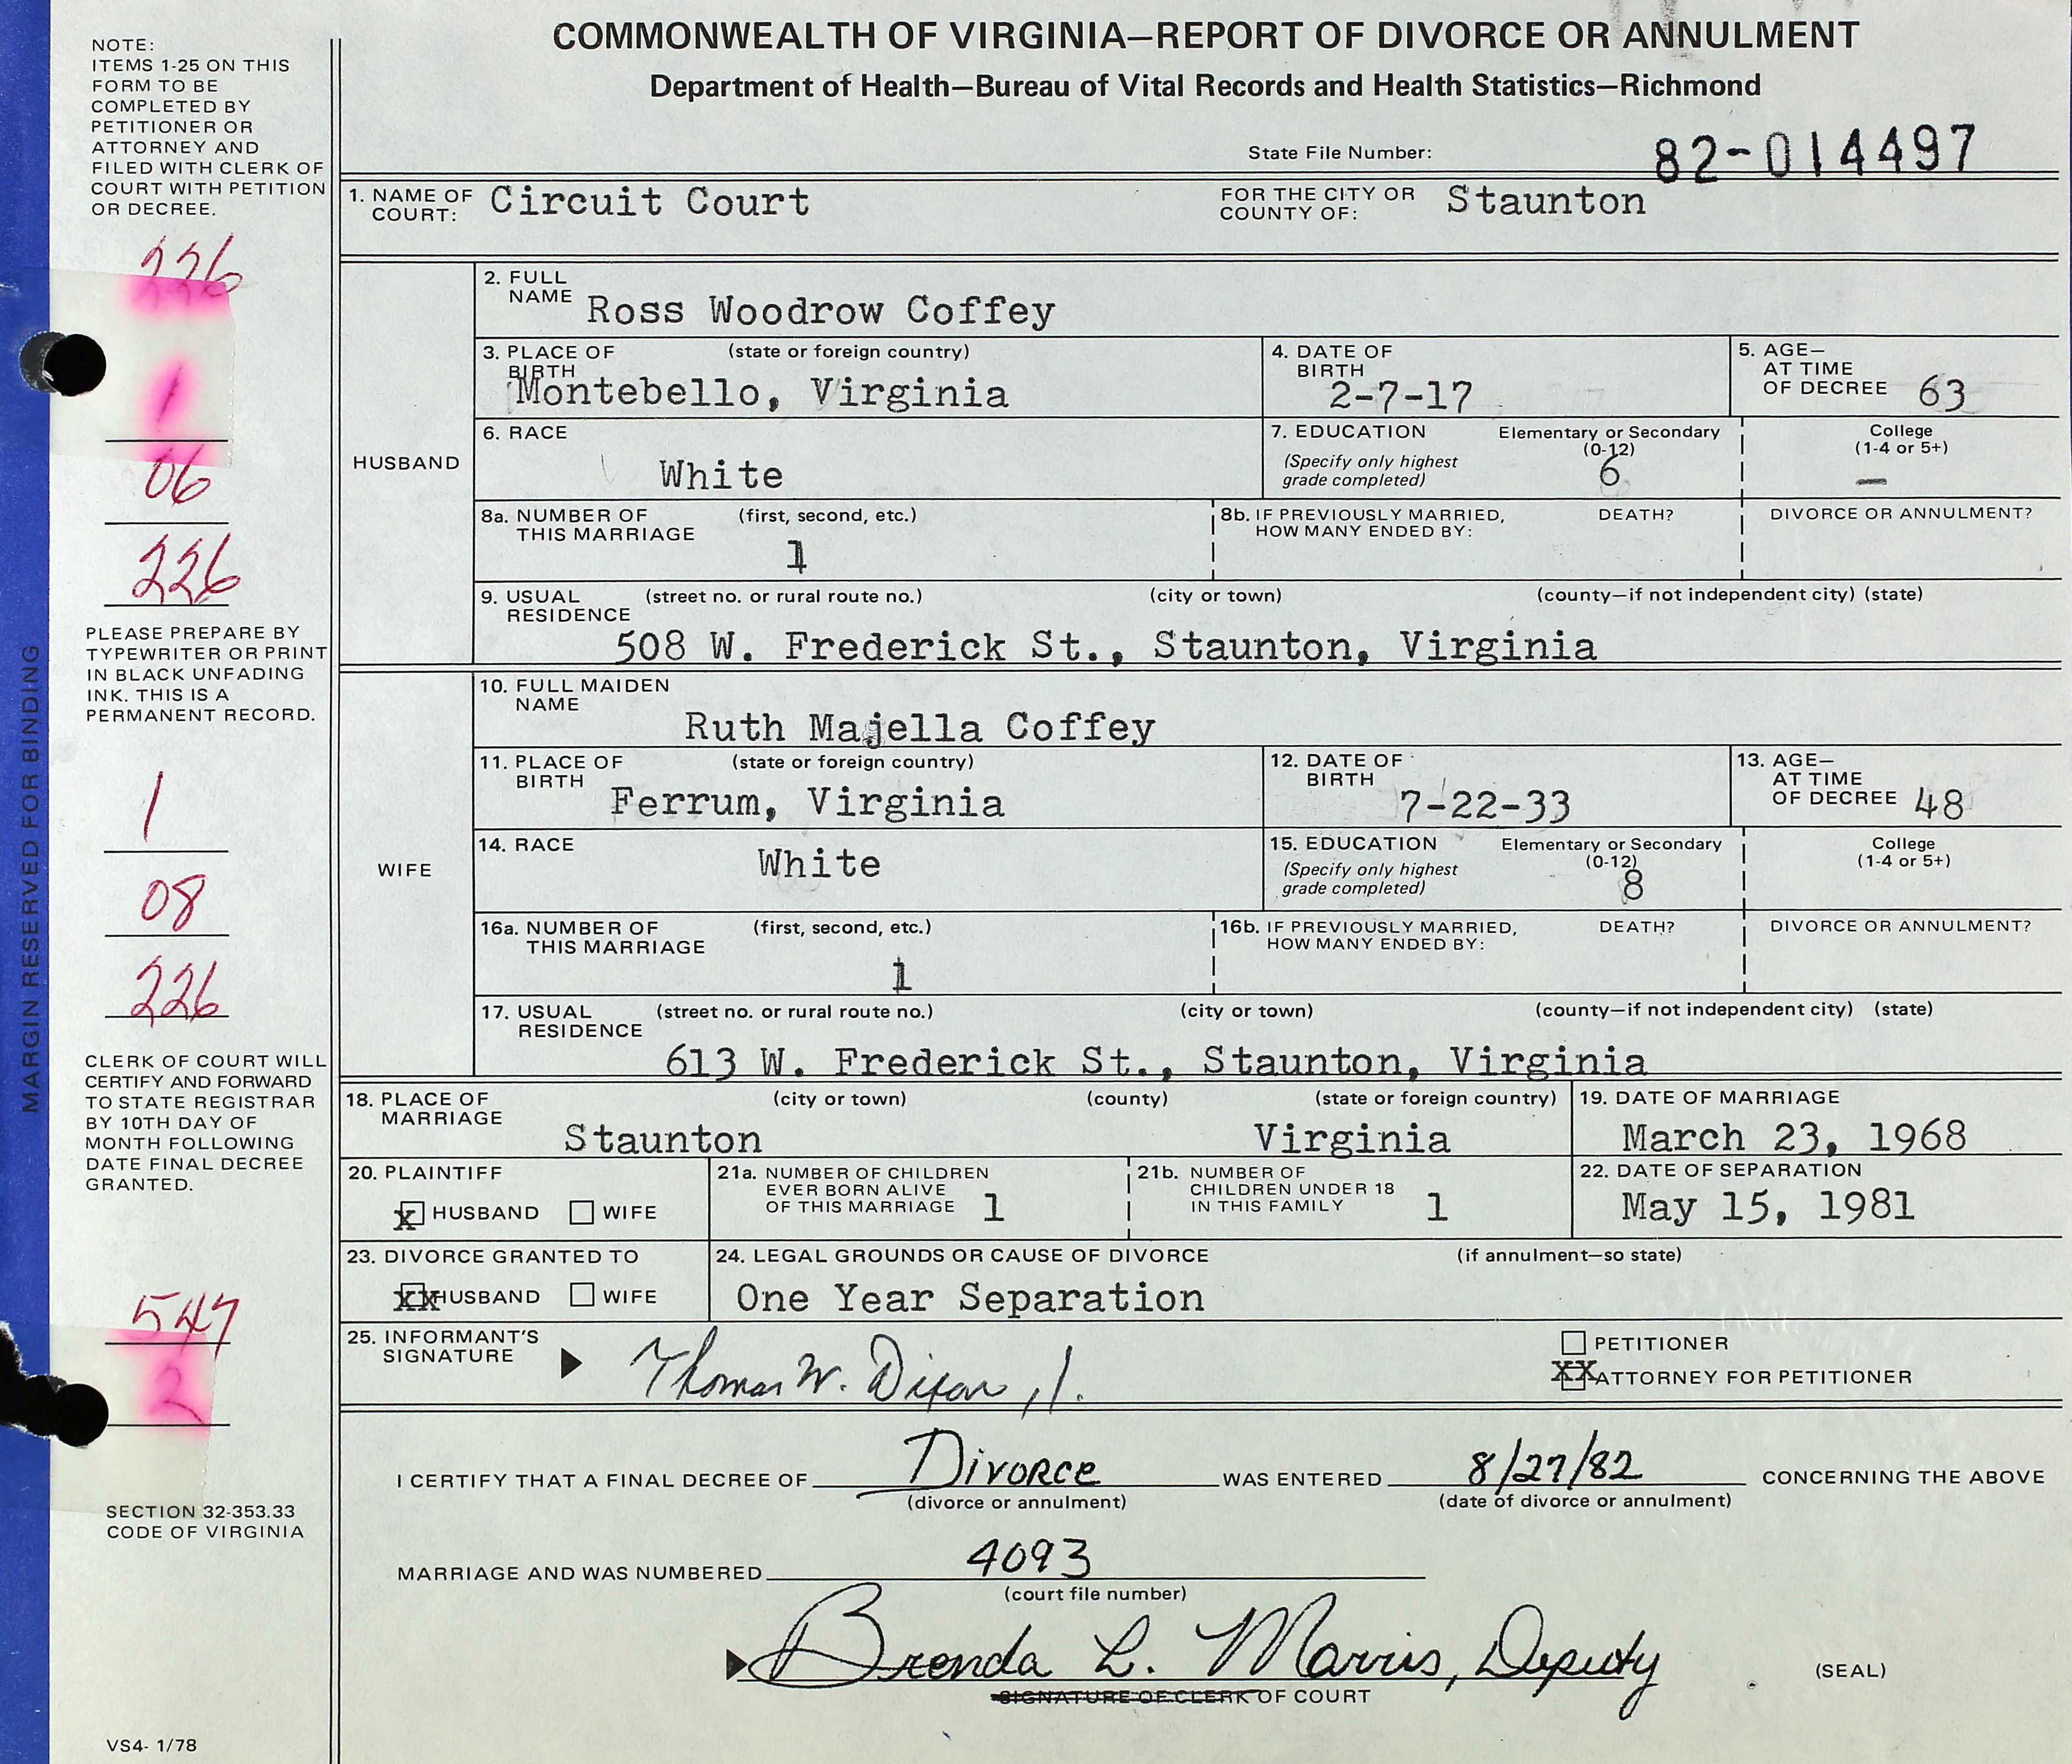 COMMONWEALTH OF VIRGINIA—REPORT OF DIVORCE OR ANNULMENT
Department of Health—Bureau of Vital Records and Health Statistics—Richmond
State File Number: 82-014497
NOTE:
ITEMS 1-25 ON THIS
FORM TO BE
COMPLETED BY
PETITIONER OR
ATTORNEY AND
FILED WITH CLERK OF
COURT WITH PETITION
OR DECREE.
226
1
06
226
PLEASE PREPARE BY
TYPEWRITER OR PRINT
IN BLACK UNFADING
INK. THIS IS A
PERMANENT RECORD.
1
08
226
CLERK OF COURT WILL
CERTIFY AND FORWARD
TO STATE REGISTRAR
BY 10TH DAY OF
MONTH FOLLOWING
DATE FINAL DECREE
GRANTED.
547
2
SECTION 32-353.33
CODE OF VIRGINIA
VS4- 1/78
MARGIN RESERVED FOR BINDING
1. NAME OF COURT: Circuit Court FOR THE CITY OR COUNTY OF: Staunton
HUSBAND
2. FULL NAME Ross Woodrow Coffey
3. PLACE OF BIRTH (state or foreign country) Montebello, Virginia
4. DATE OF BIRTH 2-7-17
5. AGE— AT TIME OF DECREE 63
6. RACE White
7. EDUCATION (Specify only highest grade completed) Elementary or Secondary (0-12) 6 College (1-4 or 5+) —
8a. NUMBER OF THIS MARRIAGE (first, second, etc.) 1
8b. IF PREVIOUSLY MARRIED, HOW MANY ENDED BY: DEATH? DIVORCE OR ANNULMENT?
9. USUAL RESIDENCE (street no. or rural route no.) (city or town) (county—if not independent city) (state)
508 W. Frederick St., Staunton, Virginia
WIFE
10. FULL MAIDEN NAME Ruth Majella Coffey
11. PLACE OF BIRTH (state or foreign country) Ferrum, Virginia
12. DATE OF BIRTH 7-22-33
13. AGE— AT TIME OF DECREE 48
14. RACE White
15. EDUCATION (Specify only highest grade completed) Elementary or Secondary (0-12) 8 College (1-4 or 5+)
16a. NUMBER OF THIS MARRIAGE (first, second, etc.) 1
16b. IF PREVIOUSLY MARRIED, HOW MANY ENDED BY: DEATH? DIVORCE OR ANNULMENT?
17. USUAL RESIDENCE (street no. or rural route no.) (city or town) (county—if not independent city) (state)
613 W. Frederick St., Staunton, Virginia
18. PLACE OF MARRIAGE (city or town) (county) (state or foreign country)
Staunton Virginia
19. DATE OF MARRIAGE March 23, 1968
20. PLAINTIFF x HUSBAND WIFE
21a. NUMBER OF CHILDREN EVER BORN ALIVE OF THIS MARRIAGE 1
21b. NUMBER OF CHILDREN UNDER 18 IN THIS FAMILY 1
22. DATE OF SEPARATION May 15, 1981
23. DIVORCE GRANTED TO xx HUSBAND WIFE
24. LEGAL GROUNDS OR CAUSE OF DIVORCE (if annulment—so state)
One Year Separation
25. INFORMANT'S SIGNATURE Thomas W. Dixon, Jr.
PETITIONER
XX ATTORNEY FOR PETITIONER
I CERTIFY THAT A FINAL DECREE OF Divorce WAS ENTERED 8/27/82 CONCERNING THE ABOVE
(divorce or annulment) (date of divorce or annulment)
MARRIAGE AND WAS NUMBERED 4093
(court file number)
Brenda L. Marris, Deputy
SIGNATURE OF CLERK OF COURT (SEAL)